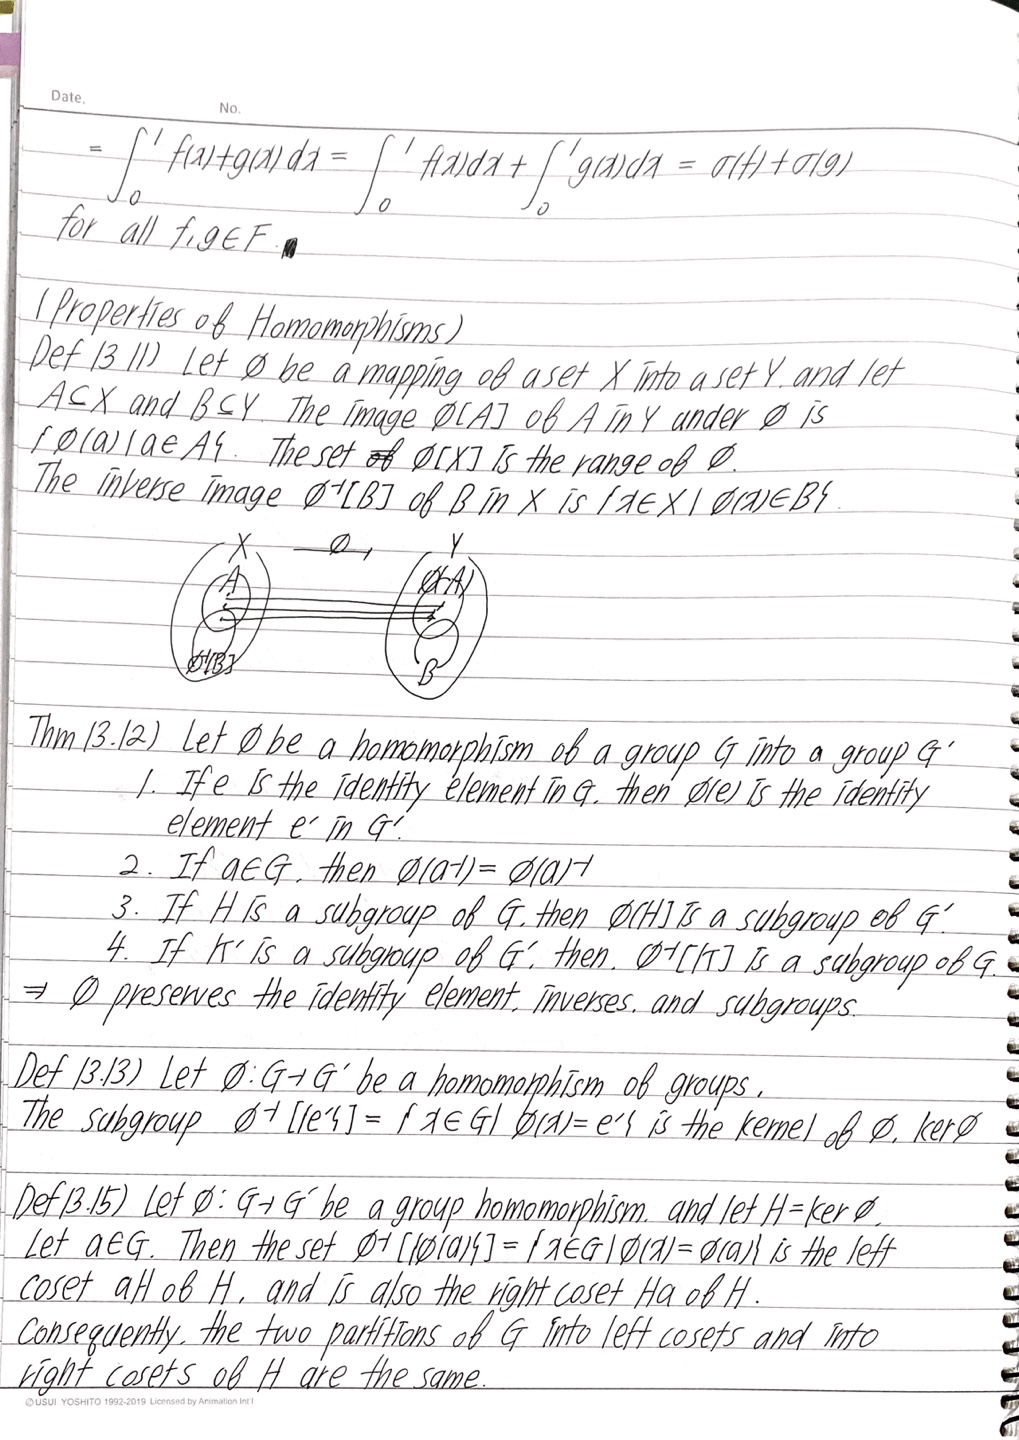 Date.
No.
= ∫₀¹ f(x)+g(x)dx = ∫₀¹ f(x)dx + ∫₀¹ g(x)dx = σ(f)+σ(g)
for all f,g∈F.
(Properties of Homomorphisms)
Def 13.11) Let ø be a mapping of a set X into a set Y, and let
A⊆X and B⊆Y. The image ø[A] of A in Y under ø is
{ø(a)|a∈A}. The set ø[X] is the range of ø.
The inverse image ø⁻¹[B] of B in X is {x∈X | ø(x)∈B}.
X ø Y
A ø(A)
ø⁻¹[B] B
Thm 13.12) Let ø be a homomorphism of a group G into a group G′
1. If e is the identity element in G, then ø(e) is the identity
element e′ in G′.
2. If a∈G, then ø(a⁻¹)=ø(a)⁻¹
3. If H is a subgroup of G, then ø[H] is a subgroup of G′.
4. If K′ is a subgroup of G′, then, ø⁻¹[K] is a subgroup of G.
⇒ ø preserves the identity element, inverses, and subgroups.
Def 13.13) Let ø:G→G′ be a homomorphism of groups,
The subgroup ø⁻¹[{e′}]={x∈G| ø(x)=e′} is the kernel of ø, kerø
Def 13.15) Let ø: G→G′ be a group homomorphism, and let H=kerø.
Let a∈G. Then the set ø⁻¹[{ø(a)}]={x∈G|ø(x)=ø(a)} is the left
coset aH of H, and is also the right coset Ha of H.
Consequently, the two partitions of G into left cosets and into
right cosets of H are the same.
©USUI YOSHITO 1992-2019 Licensed by Animation Int'l